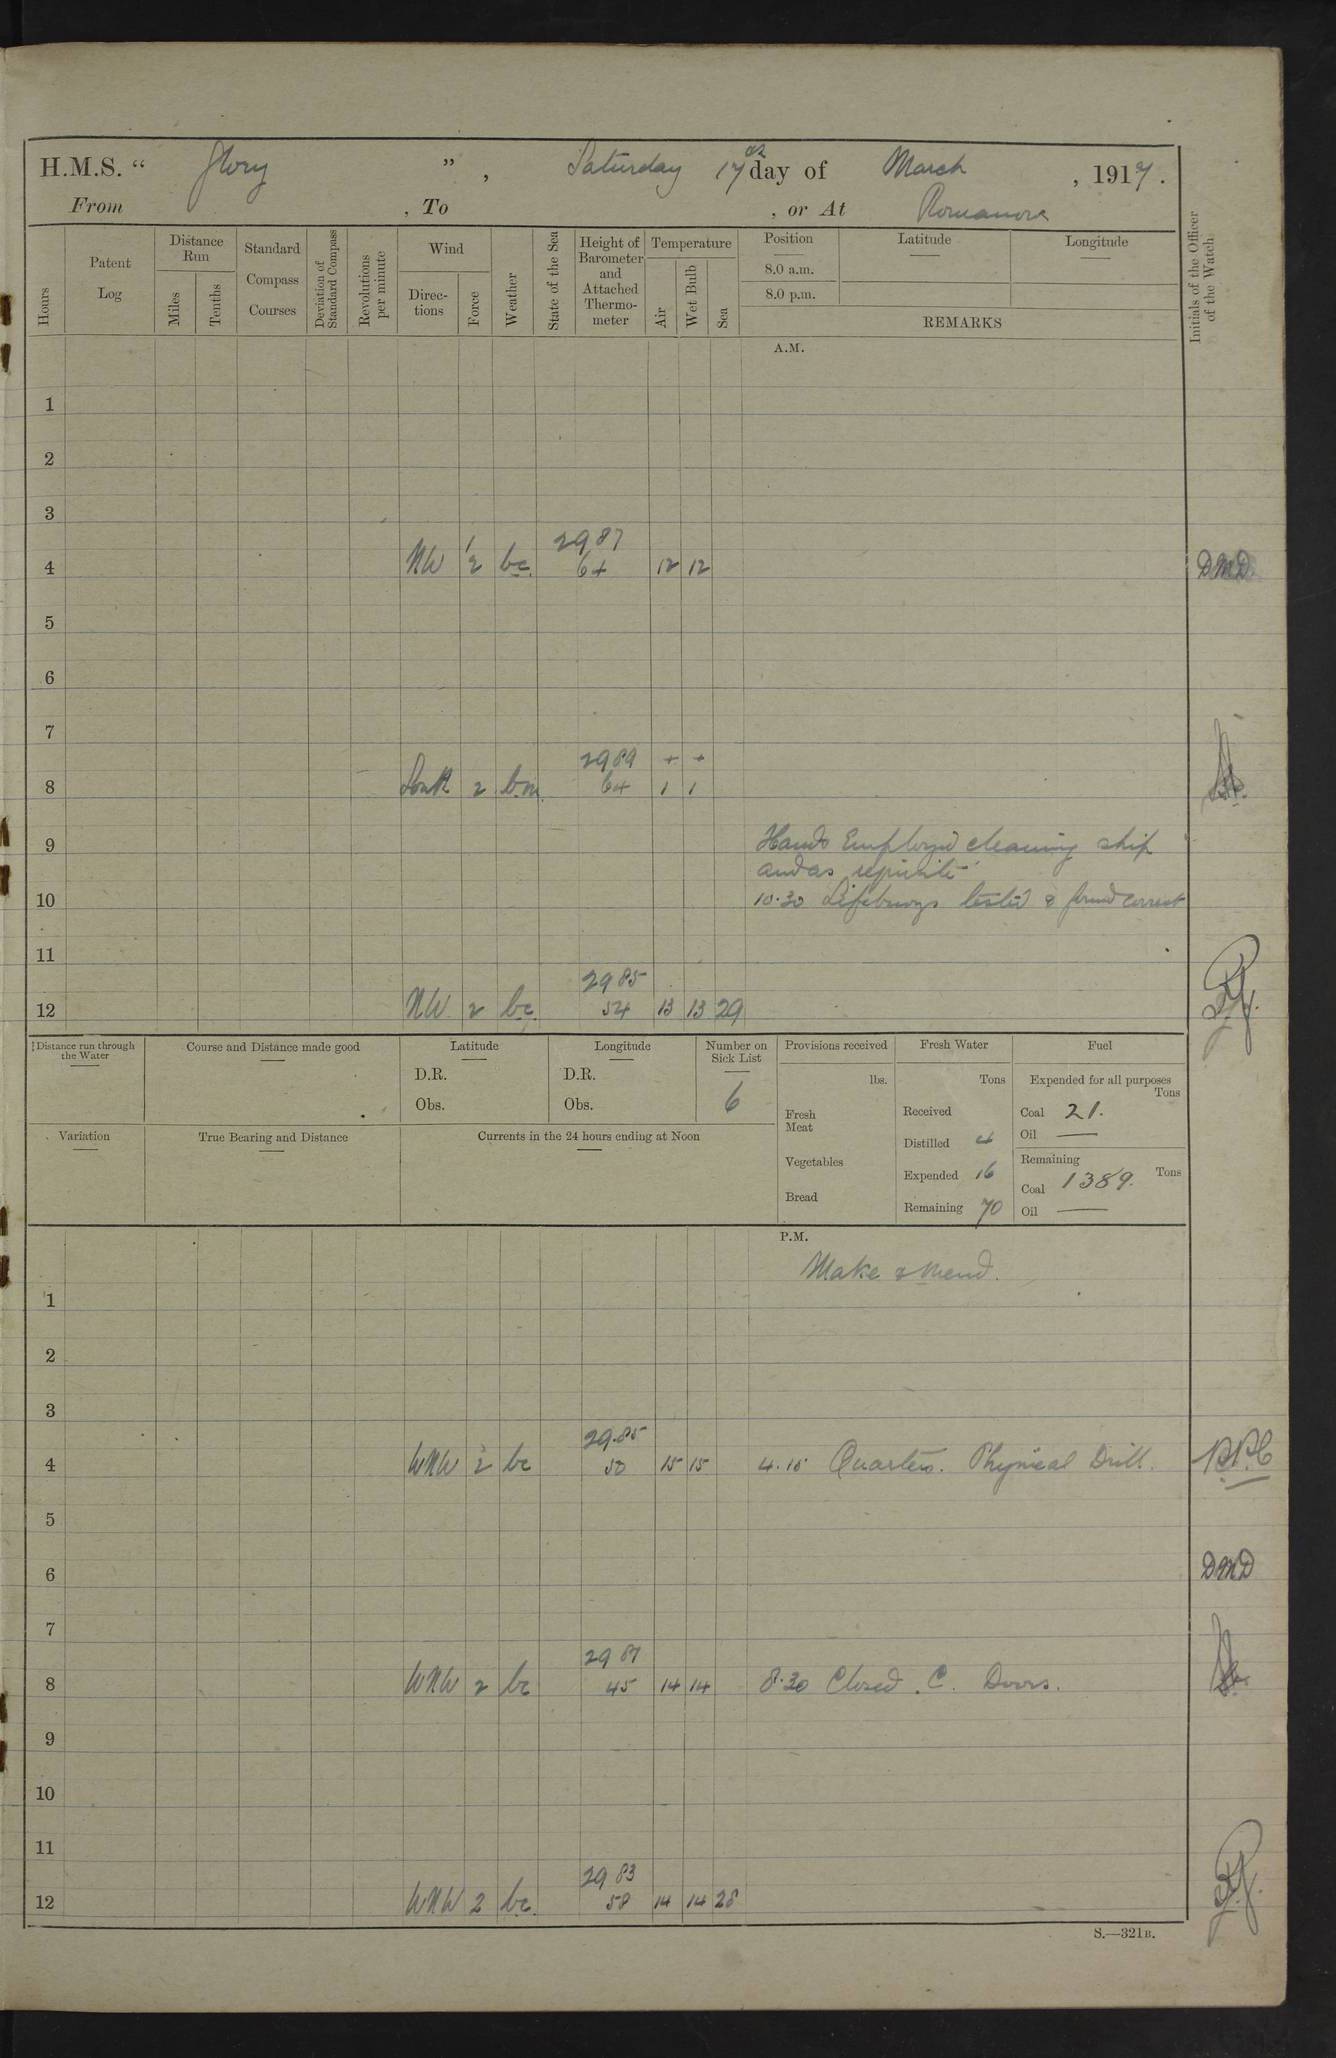 H.M.S. “ Glory ” , Saturday 17th day of March , 1917 .
From , To , or At Romanova
Hours
Patent Log
Distance Run
Miles
Tenths
Standard Compass Courses
Deviation of Standard Compass
Revolutions per minute
Wind
Direc- tions
Force
Weather
State of the Sea
Height of Barometer and Attached Thermo- meter
Temperature
Air
Wet Bulb
Sea
Position
8.0 a.m.
8.0 p.m.
Latitude
Longitude
REMARKS
Initials of the Officer of the Watch
A.M.
1
2
3
29 87
4 NW 1/2 bc. 64 12 12 DMD
5
6
7
29 89 + +
8 South 2 b.m. 64 1 1
9 Hands Employed cleaning ship
and as requisite
10 10.30 Lifebuoys tested & found correct
11
29 85
12 NW 2 bc. 54 13 13 29
Distance run through the Water
Course and Distance made good
Latitude
D.R.
Obs.
Longitude
D.R.
Obs.
Number on Sick List
6
Provisions received
lbs.
Fresh Meat
Vegetables
Bread
Fresh Water
Tons
Received
Distilled 4
Expended 16
Remaining 70
Fuel
Expended for all purposes
Tons
Coal 21.
Oil —
Remaining
Tons
Coal 1389.
Oil —
Variation
True Bearing and Distance
Currents in the 24 hours ending at Noon
P.M.
Make & Mend.
1
2
3
29.85
4 WNW 2 bc 50 15 15 4.15 Quarters. Physical Drill.
5
6 DMD
7
29 87
8 WNW 2 bc 45 14 14 8.30 Closed . C. Doors.
9
10
11
29 83
12 WNW 2 bc. 58 14 14 28
S.—321B.